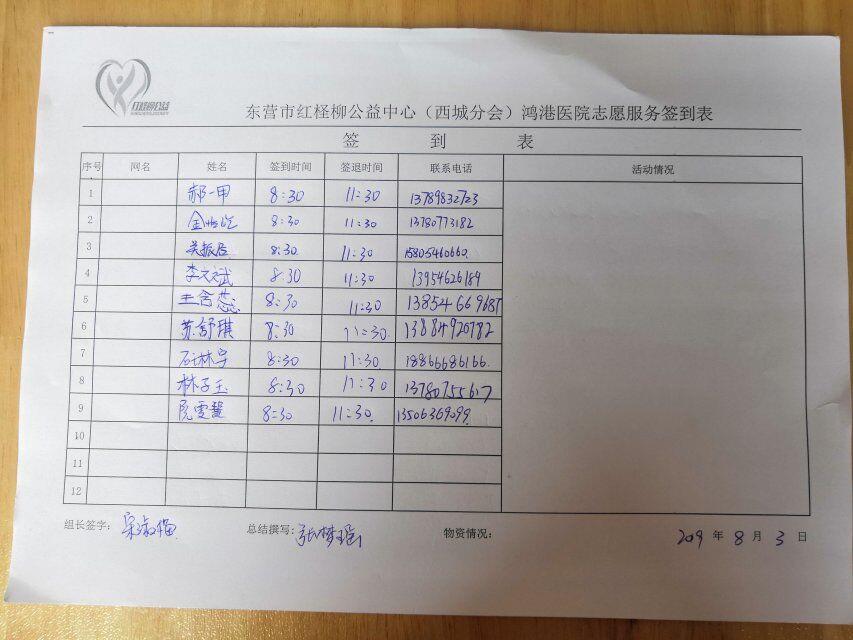 红柽柳公益
东营市红柽柳公益中心（西城分会）鸿港医院志愿服务签到表
签 到 表
序号 网名 姓名 签到时间 签退时间 联系电话 活动情况
1 郝一甲 8:30 11:30 13789832723
2 8:30 11:30 13780773182
3 8:30 11:30 15805460660
4 李文斌 8:30 11:30 13954626189
5 王含蕊 8:30 11:30
6 苏舒琪 8:30 11:30 13884920782
7 石林宇 8:30 11:30 18866686166
8 林子玉 8:30 11:30 13780755617
9 阮雯慧 8:30 11:30 13506369099
10
11
12
组长签字： 总结撰写：张梦瑶 物资情况： 209 年 8 月 3 日